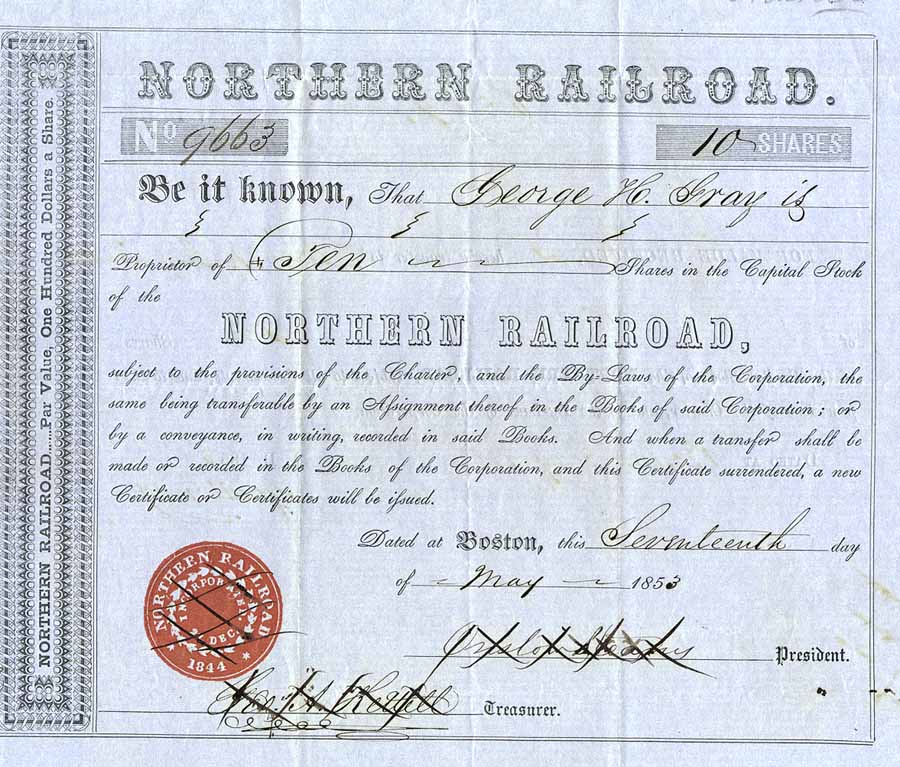 NORTHERN RAILROAD.
No 9663 10 SHARES
Be it known, That George H. Gray is
Proprietor of Ten Shares in the Capital Stock
of the
NORTHERN RAILROAD,
subject to the provisions of the Charter, and the By=Laws of the Corporation, the
same being transferable by an Assignment thereof in the Books of said Corporation; or
by a conveyance, in writing, recorded in said Books. And when a transfer shall be
made or recorded in the Books of the Corporation, and this Certificate surrendered, a new
Certificate or Certificates will be issued.
Dated at Boston, this Seventeenth day
of May 1853
President.
Treasurer.
NORTHERN RAILROAD
INCORPORATED
DEC.
1844
NORTHERN RAILROAD.....Par Value, One Hundred Dollars a Share.